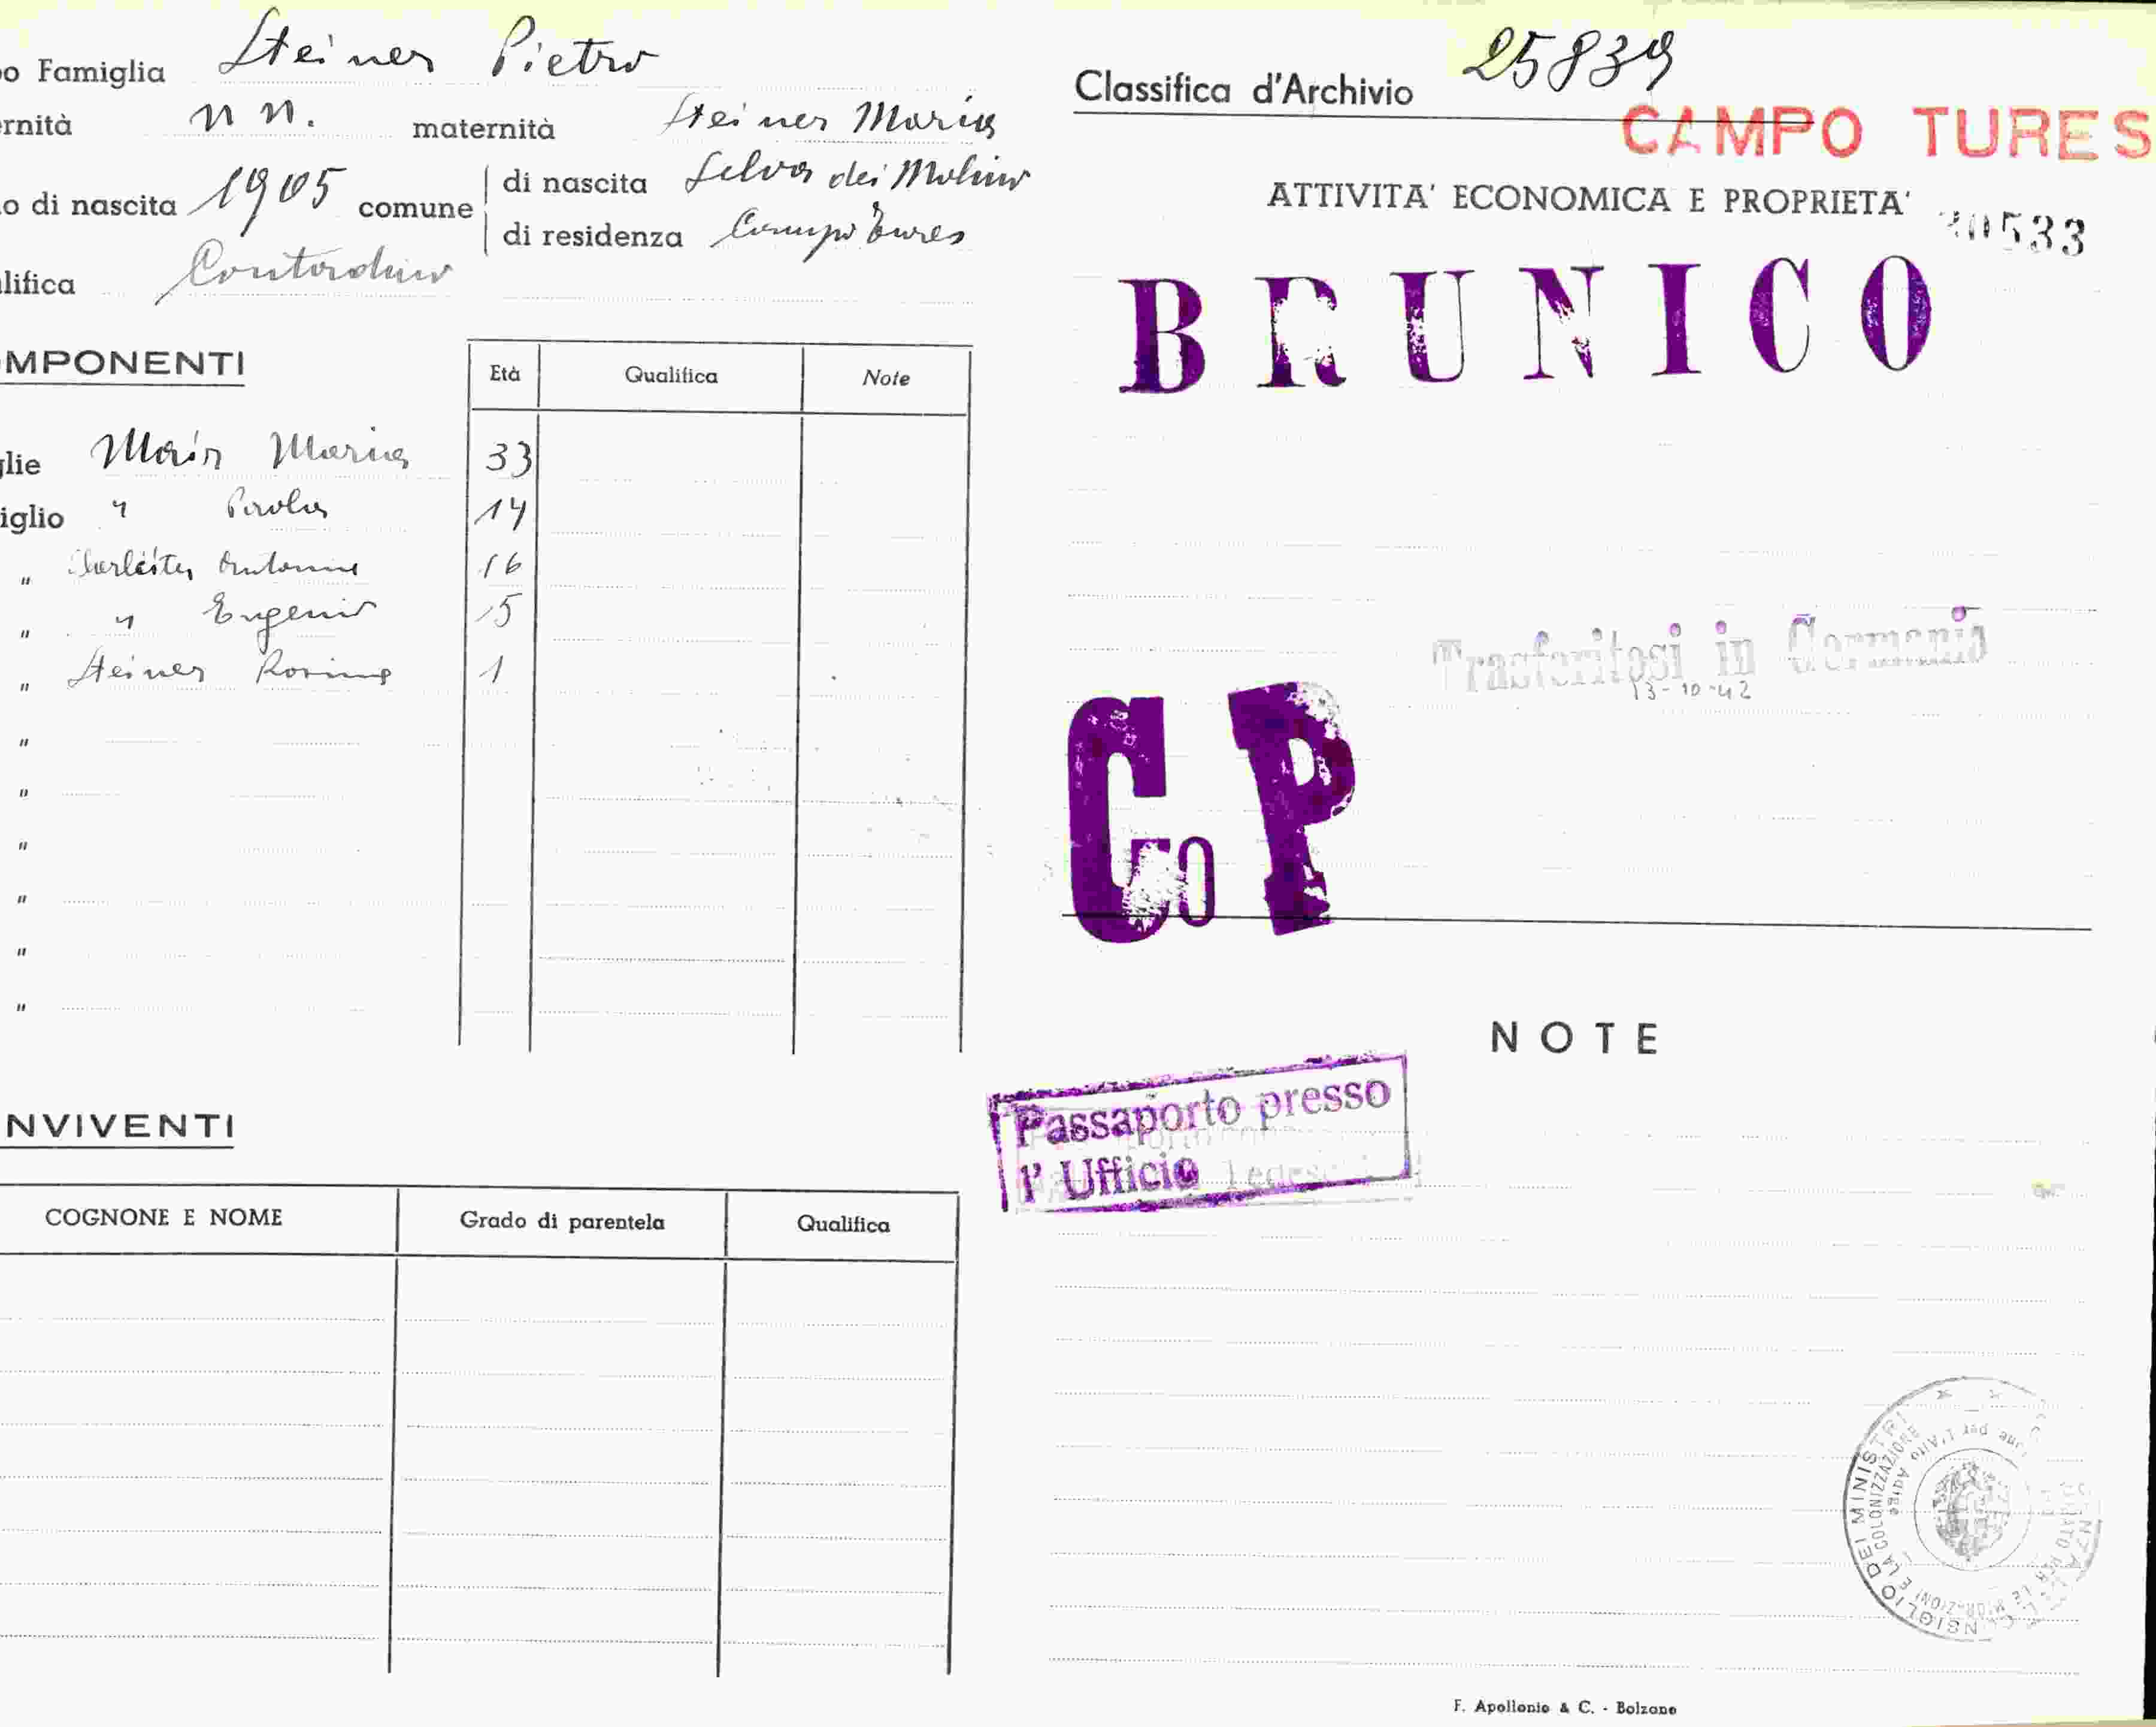 o Famiglia Steiner Pietro
rnità n n. maternità Steiner Maria
o di nascita 1905 comune di nascita Selva dei Molini
di residenza Campo Tures
lifica Contadino
MPONENTI
Età Qualifica Note
glie Mair Maria 33
iglio " Paola 14
" Antonio 16
" " Eugenio 5
" Steiner Rosina 1
"
"
"
"
"
"
NVIVENTI
COGNONE E NOME Grado di parentela Qualifica
Classifica d'Archivio 25839
CAMPO TURES
ATTIVITA' ECONOMICA E PROPRIETA'
30533
BRUNICO
Trasferitosi in Germania
13-10-42
Co P
NOTE
Passaporto presso
l' Ufficio Tedesco
NSIGLIO DEI MINISTRI
E LA COLONIZZAZIONE
per l'Alto Adige
F. Apollonio & C. - Bolzano